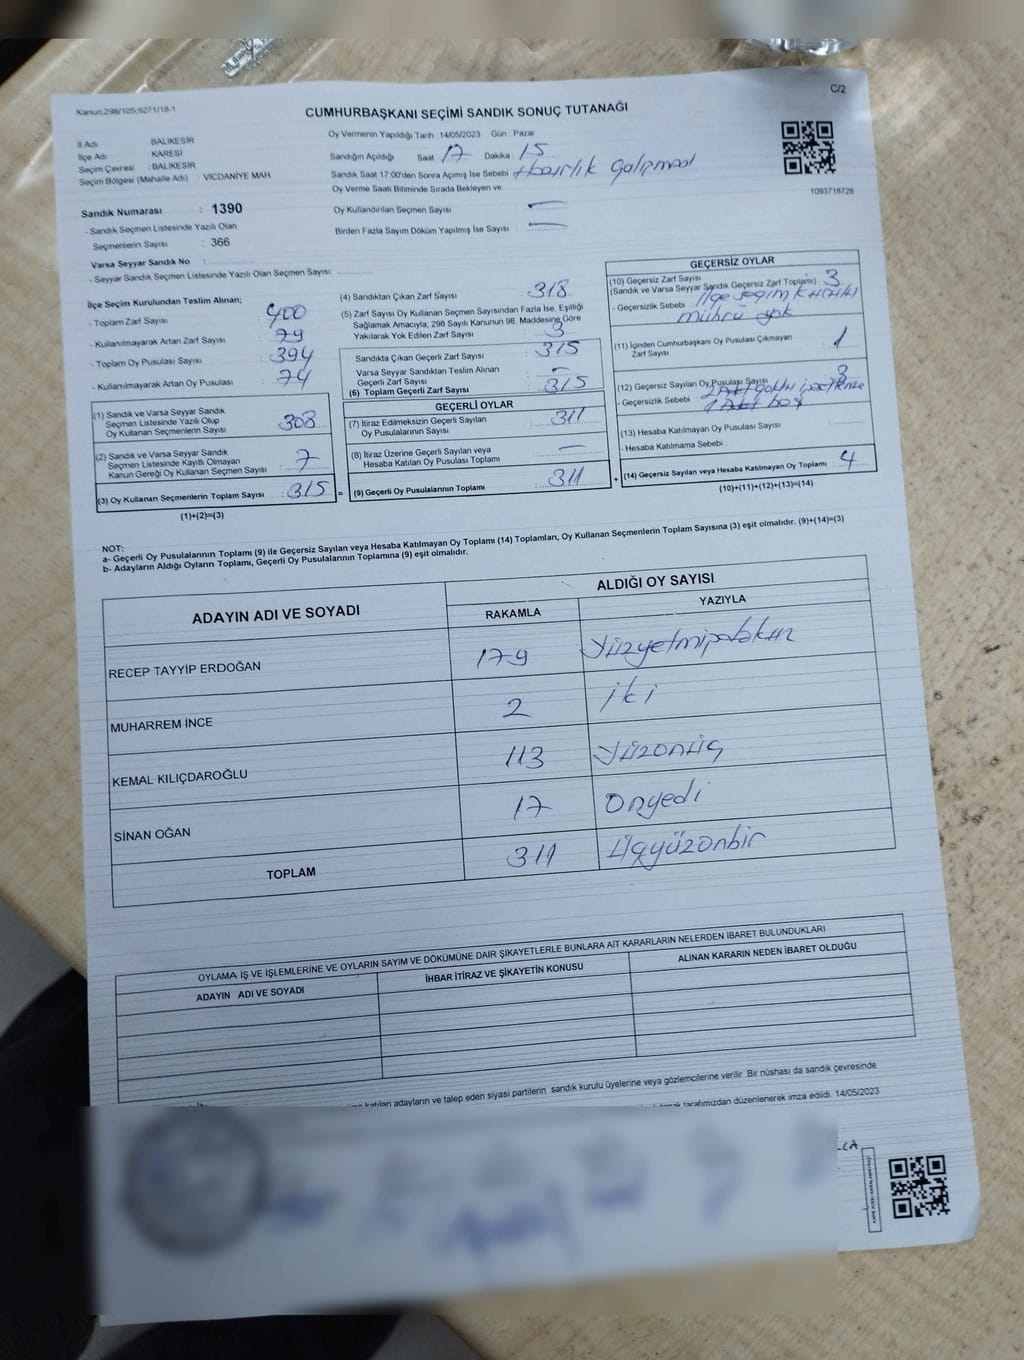 Kanun:298/105;6271/18-1
C/2
CUMHURBAŞKANI SEÇİMİ SANDIK SONUÇ TUTANAĞI
İl Adı BALIKESİR
İlçe Adı KARESİ
Seçim Çevresi : BALIKESİR
Seçim Bölgesi (Mahalle Adı) VİCDANİYE MAH
Sandık Numarası : 1390
- Sandık Seçmen Listesinde Yazılı Olan
Seçmenlerin Sayısı : 366
Varsa Seyyar Sandık No :
- Seyyar Sandık Seçmen Listesinde Yazılı Olan Seçmen Sayısı:
Oy Vermenin Yapıldığı Tarih : 14/05/2023 Gün : Pazar
Sandığın Açıldığı Saat 17 Dakika : 15
Sandık Saat 17:00'den Sonra Açımış İse Sebebi Hazırlık Çalışması
Oy Verme Saati Bitiminde Sırada Bekleyen ve
Oy Kullandırılan Seçmen Sayısı : —
Birden Fazla Sayım Döküm Yapılmış İse Sayısı : —
1093718728
İlçe Seçim Kurulundan Teslim Alınan;
- Toplam Zarf Sayısı : 400
- Kullanılmayarak Artan Zarf Sayısı : 79
- Toplam Oy Pusulası Sayısı : 394
- Kullanılmayarak Artan Oy Pusulası : 74
(1) Sandık ve Varsa Seyyar Sandık
Seçmen Listesinde Yazılı Olup
Oy Kullanan Seçmenlerin Sayısı : 308
(2) Sandık ve Varsa Seyyar Sandık
Seçmen Listesinde Kayıtlı Olmayan
Kanun Gereği Oy Kullanan Seçmen Sayısı : 7
(3) Oy Kullanan Seçmenlerin Toplam Sayısı : 315 =
(1)+(2)=(3)
(4) Sandıktan Çıkan Zarf Sayısı : 318
(5) Zarf Sayısı Oy Kullanan Seçmen Sayısından Fazla İse, Eşitliği
Sağlamak Amacıyla, 298 Sayılı Kanunun 98. Maddesine Göre
Yakılarak Yok Edilen Zarf Sayısı : 3
Sandıkta Çıkan Geçerli Zarf Sayısı : 315
Varsa Seyyar Sandıktan Teslim Alınan
Geçerli Zarf Sayısı : —
(6) Toplam Geçerli Zarf Sayısı : 315
GEÇERLİ OYLAR
(7) İtiraz Edilmeksizin Geçerli Sayılan
Oy Pusulalarının Sayısı : 311
(8) İtiraz Üzerine Geçerli Sayılan veya
Hesaba Katılan Oy Pusulası Toplamı : —
(9) Geçerli Oy Pusulalarının Toplamı : 311 +
GEÇERSİZ OYLAR
(10) Geçersiz Zarf Sayısı
(Sandık ve Varsa Seyyar Sandık Geçersiz Zarf Toplamı) : 3
- Geçersizlik Sebebi : İlçe seçim kurulu
mührü yok
(11) İçinden Cumhurbaşkanı Oy Pusulası Çıkmayan
Zarf Sayısı : 1
(12) Geçersiz Sayılan Oy Pusulası Sayısı : 3
- Geçersizlik Sebebi :
(13) Hesaba Katılmayan Oy Pusulası Sayısı :
- Hesaba Katılmama Sebebi :
(14) Geçersiz Sayılan veya Hesaba Katılmayan Oy Toplamı : 4
(10)+(11)+(12)+(13)=(14)
NOT:
a- Geçerli Oy Pusulalarının Toplamı (9) ile Geçersiz Sayılan veya Hesaba Katılmayan Oy Toplamı (14) Toplamları, Oy Kullanan Seçmenlerin Toplam Sayısına (3) eşit olmalıdır. (9)+(14)=(3)
b- Adayların Aldığı Oyların Toplamı, Geçerli Oy Pusulalarının Toplamına (9) eşit olmalıdır.
ADAYIN ADI VE SOYADI
ALDIĞI OY SAYISI
RAKAMLA YAZIYLA
RECEP TAYYİP ERDOĞAN 179 Yüzyetmişdokuz
MUHARREM İNCE 2 iki
KEMAL KILIÇDAROĞLU 113 Yüzonüç
SİNAN OĞAN 17 Onyedi
TOPLAM 311 Üçyüzonbir
OYLAMA İŞ VE İŞLEMLERİNE VE OYLARIN SAYIM VE DÖKÜMÜNE DAİR ŞİKAYETLERLE BUNLARA AİT KARARLARIN NELERDEN İBARET BULUNDUKLARI
ADAYIN ADI VE SOYADI İHBAR İTİRAZ VE ŞİKAYETİN KONUSU ALINAN KARARIN NEDEN İBARET OLDUĞU
katılan adayların ve talep eden siyasi partilerin sandık kurulu üyelerine veya gözlemcilerine verilir .Bir nüshası da sandık çevresinde
tarafımızdan düzenlenerek imza edildi. 14/05/2023